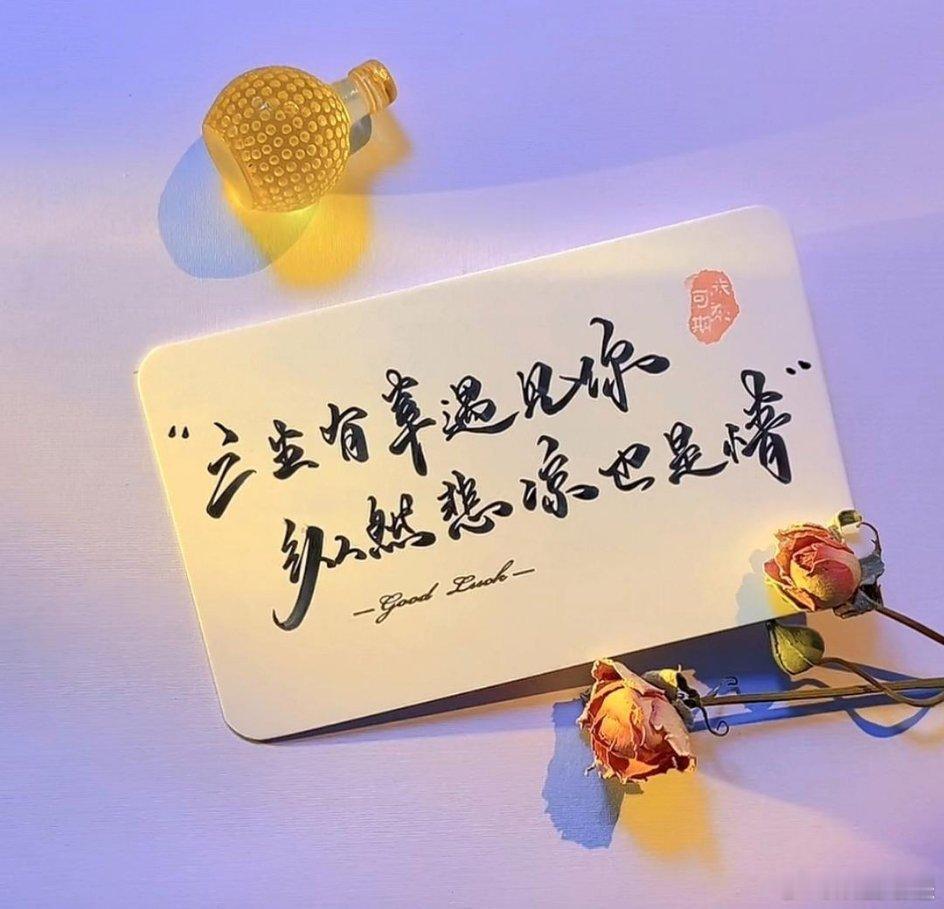 “三生有幸遇见你
纵然悲凉也是情”
—Good Luck—
未来可期